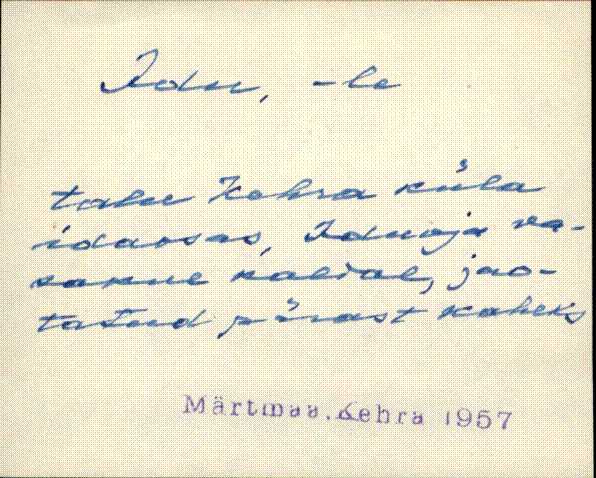 Idu, -le
talu Kehra küla
idaosas, Iduoja va-
sakul kaldal, jao-
tatud pärast kaheks
Märtmaa. Kehra 1957